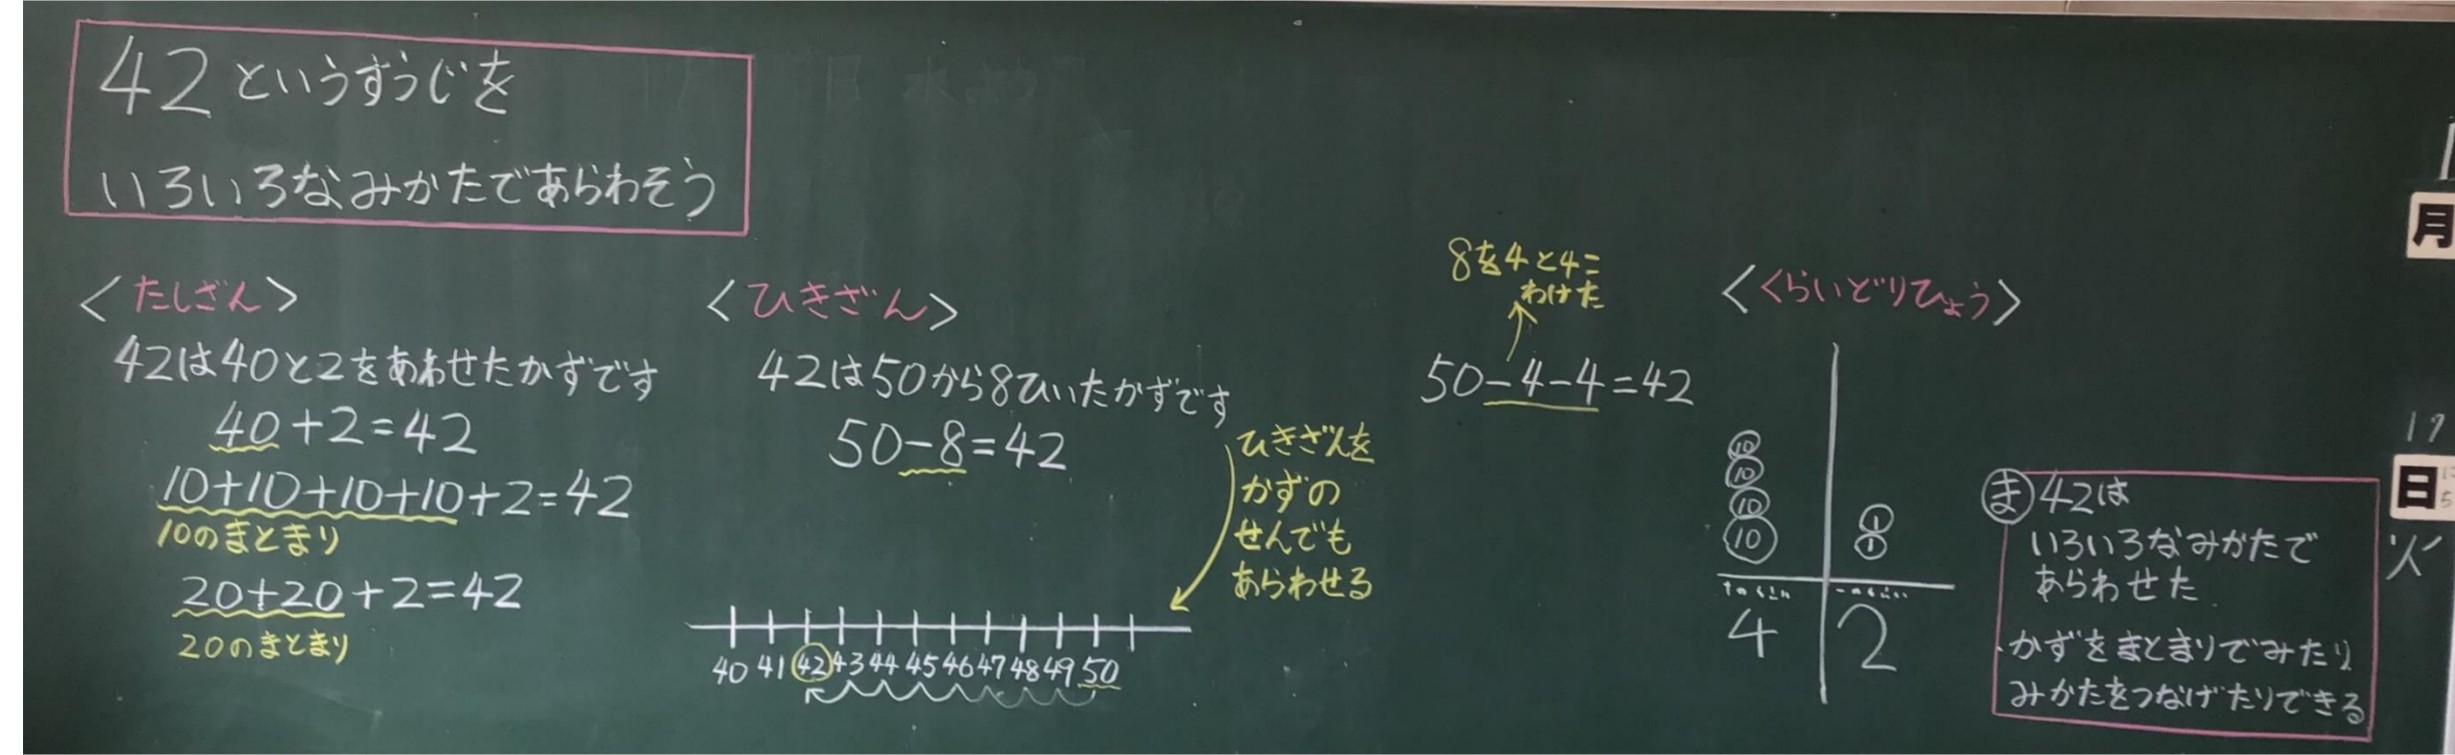 42というすうじを
いろいろなみかたであらわそう
<たしざん>
42は40と2をあわせたかずです
40+2=42
10+10+10+10+2=42
10のまとまり
20+20+2=42
20のまとまり
<ひきざん>
42は50から8ひいたかずです
50-8=42
ひきざんを
かずの
せんでも
あらわせる
40 41 42 43 44 45 46 47 48 49 50
8を4と4に
わけた
50-4-4=42
<くらいどりひょう>
10
10
10
10
1
1
4 2
ま 42は
いろいろなみかたで
あらわせた
・かずをまとまりでみたり
みかたをつなげたりできる
月
17
日
火